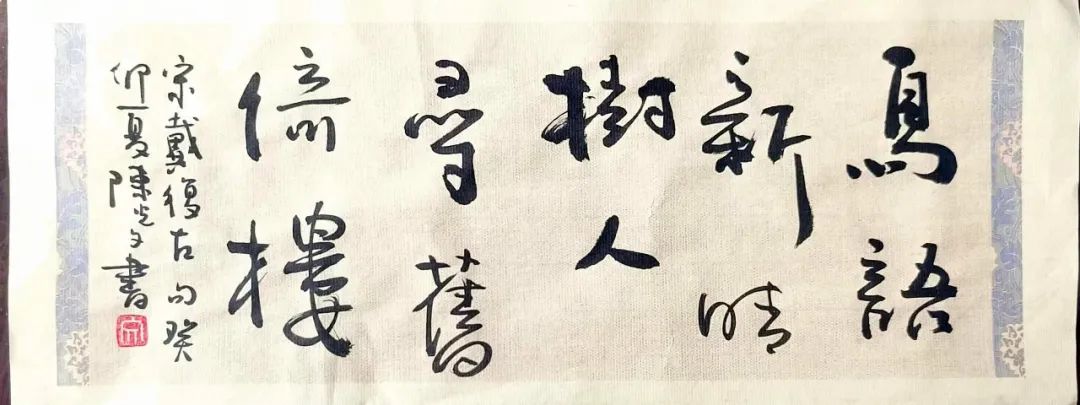 鳥語
新晴
樹人
尋舊
倚樓
宋戴復古句癸
卯夏陳光文書